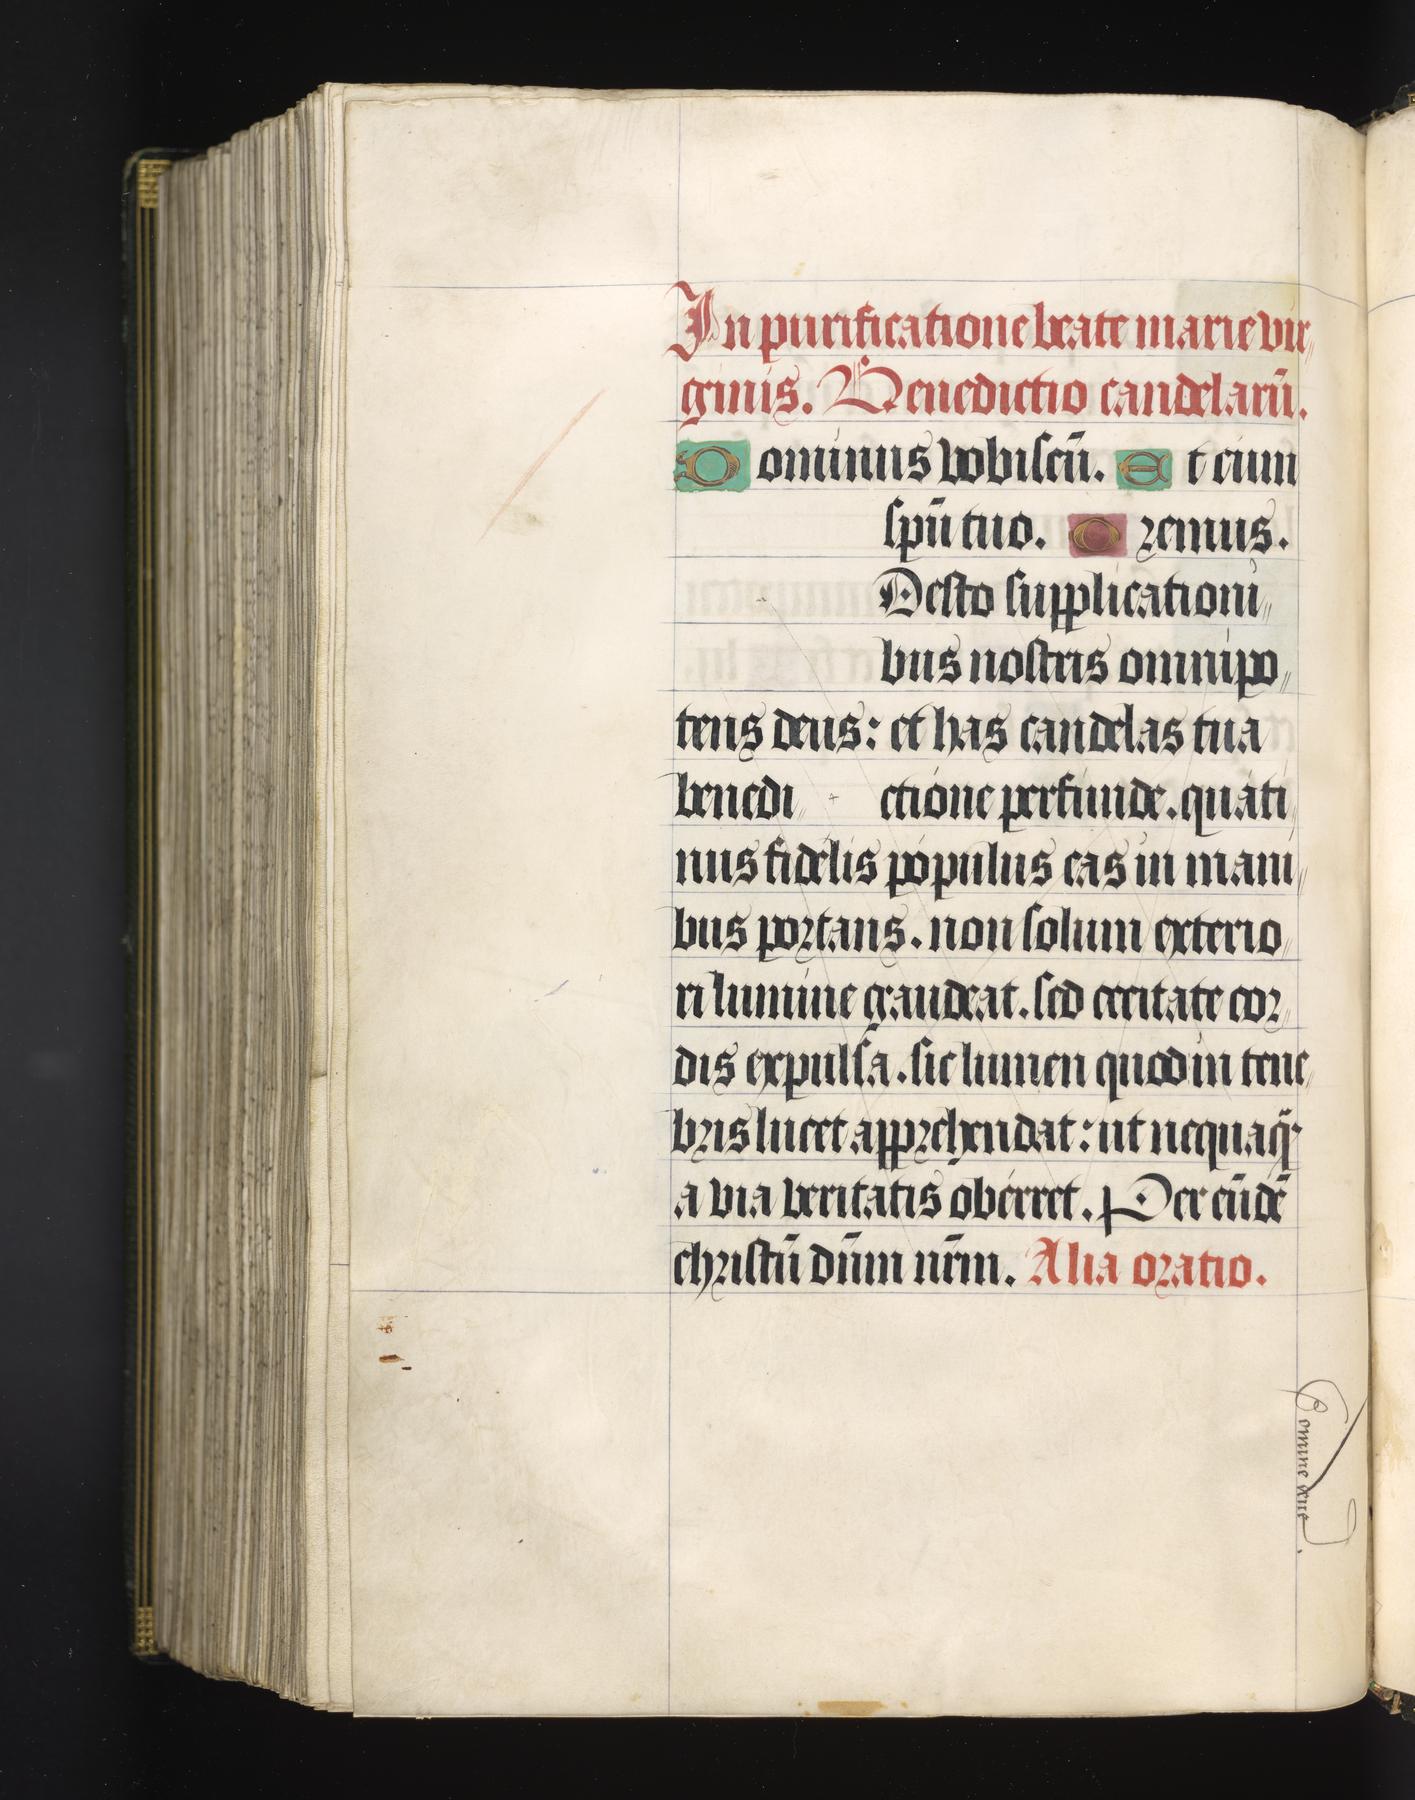 In purificatione beate marie vir„
ginis. Benedictio candelarū.
Dominus vobiscū. Et cium
spū tuo. Oremus.
Adesto supplicationi„
bus nostris omnipo„
tens deus: et has candelas tua
benedi„ + ctione perfunde. quati
nus fidelis populus eas in mani„
bus portans. non solum exterio„
ri lumine gaudeat. sed cecitate cor„
dis expulsa. sic lumen quod in tene
bris lucet apprehendat: ut nequaq̄
a via veritatis oberret. Per eūdē
christū dūm nr̄m. Alia oratio.
Domine deus.